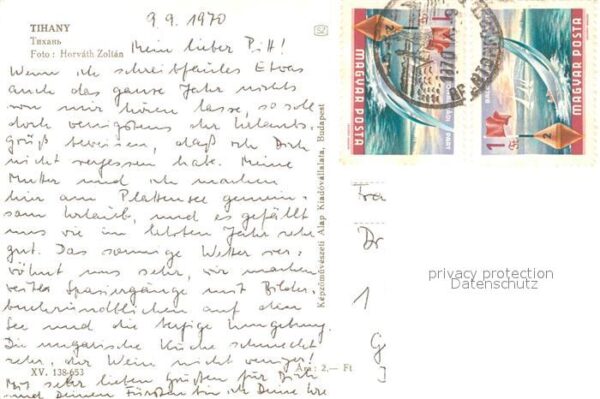 9.9.1970
TIHANY
Тихань
Foto: Horváth Zoltán
Mein lieber Pitt!
Wenn ich schreibfaules Etwas
auch das ganze Jahr nichts
von mir hören lasse, so soll
doch wenigstens der Urlaubs-
gruß beweisen, daß ich Dich
nicht vergessen habe. Meine
Mutter und ich machen
hier am Plattensee gemein-
sam Urlaub, und es gefällt
uns wie im letzten Jahr sehr
gut. Das sonnige Wetter ver-
wöhnt uns sehr, wir machen
weite Spaziergänge mit Bilder-
auf dem
See und die Umgebung.
Die ungarische Küche schmeckt
sehr, der Wein nicht weniger!
XV. 138-653
Ára: 2,— Ft
Mit sehr lieben Grüßen für Dich
und Deinen bin ich Deine
Képzőművészeti Alap Kiadóvállalata, Budapest
MAGYAR POSTA
1
2
MAGYAR POSTA
1
2
Fra
Dr
1
G
privacy protection
Datenschutz